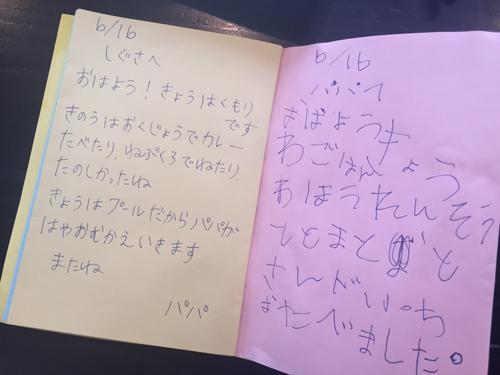 6/16
しぐさへ
おはよう！きょうはくもり
です
きのうはおくじょうでカレー
たべたり、ねぶくろでねたり、
たのしかったね
きょうはプールだからパパが
はやおむかえいきます
またね
パパ
6/16
パパて
きょう
わごはん
わほうれんそう
とと
さんどいっち
おたべました。